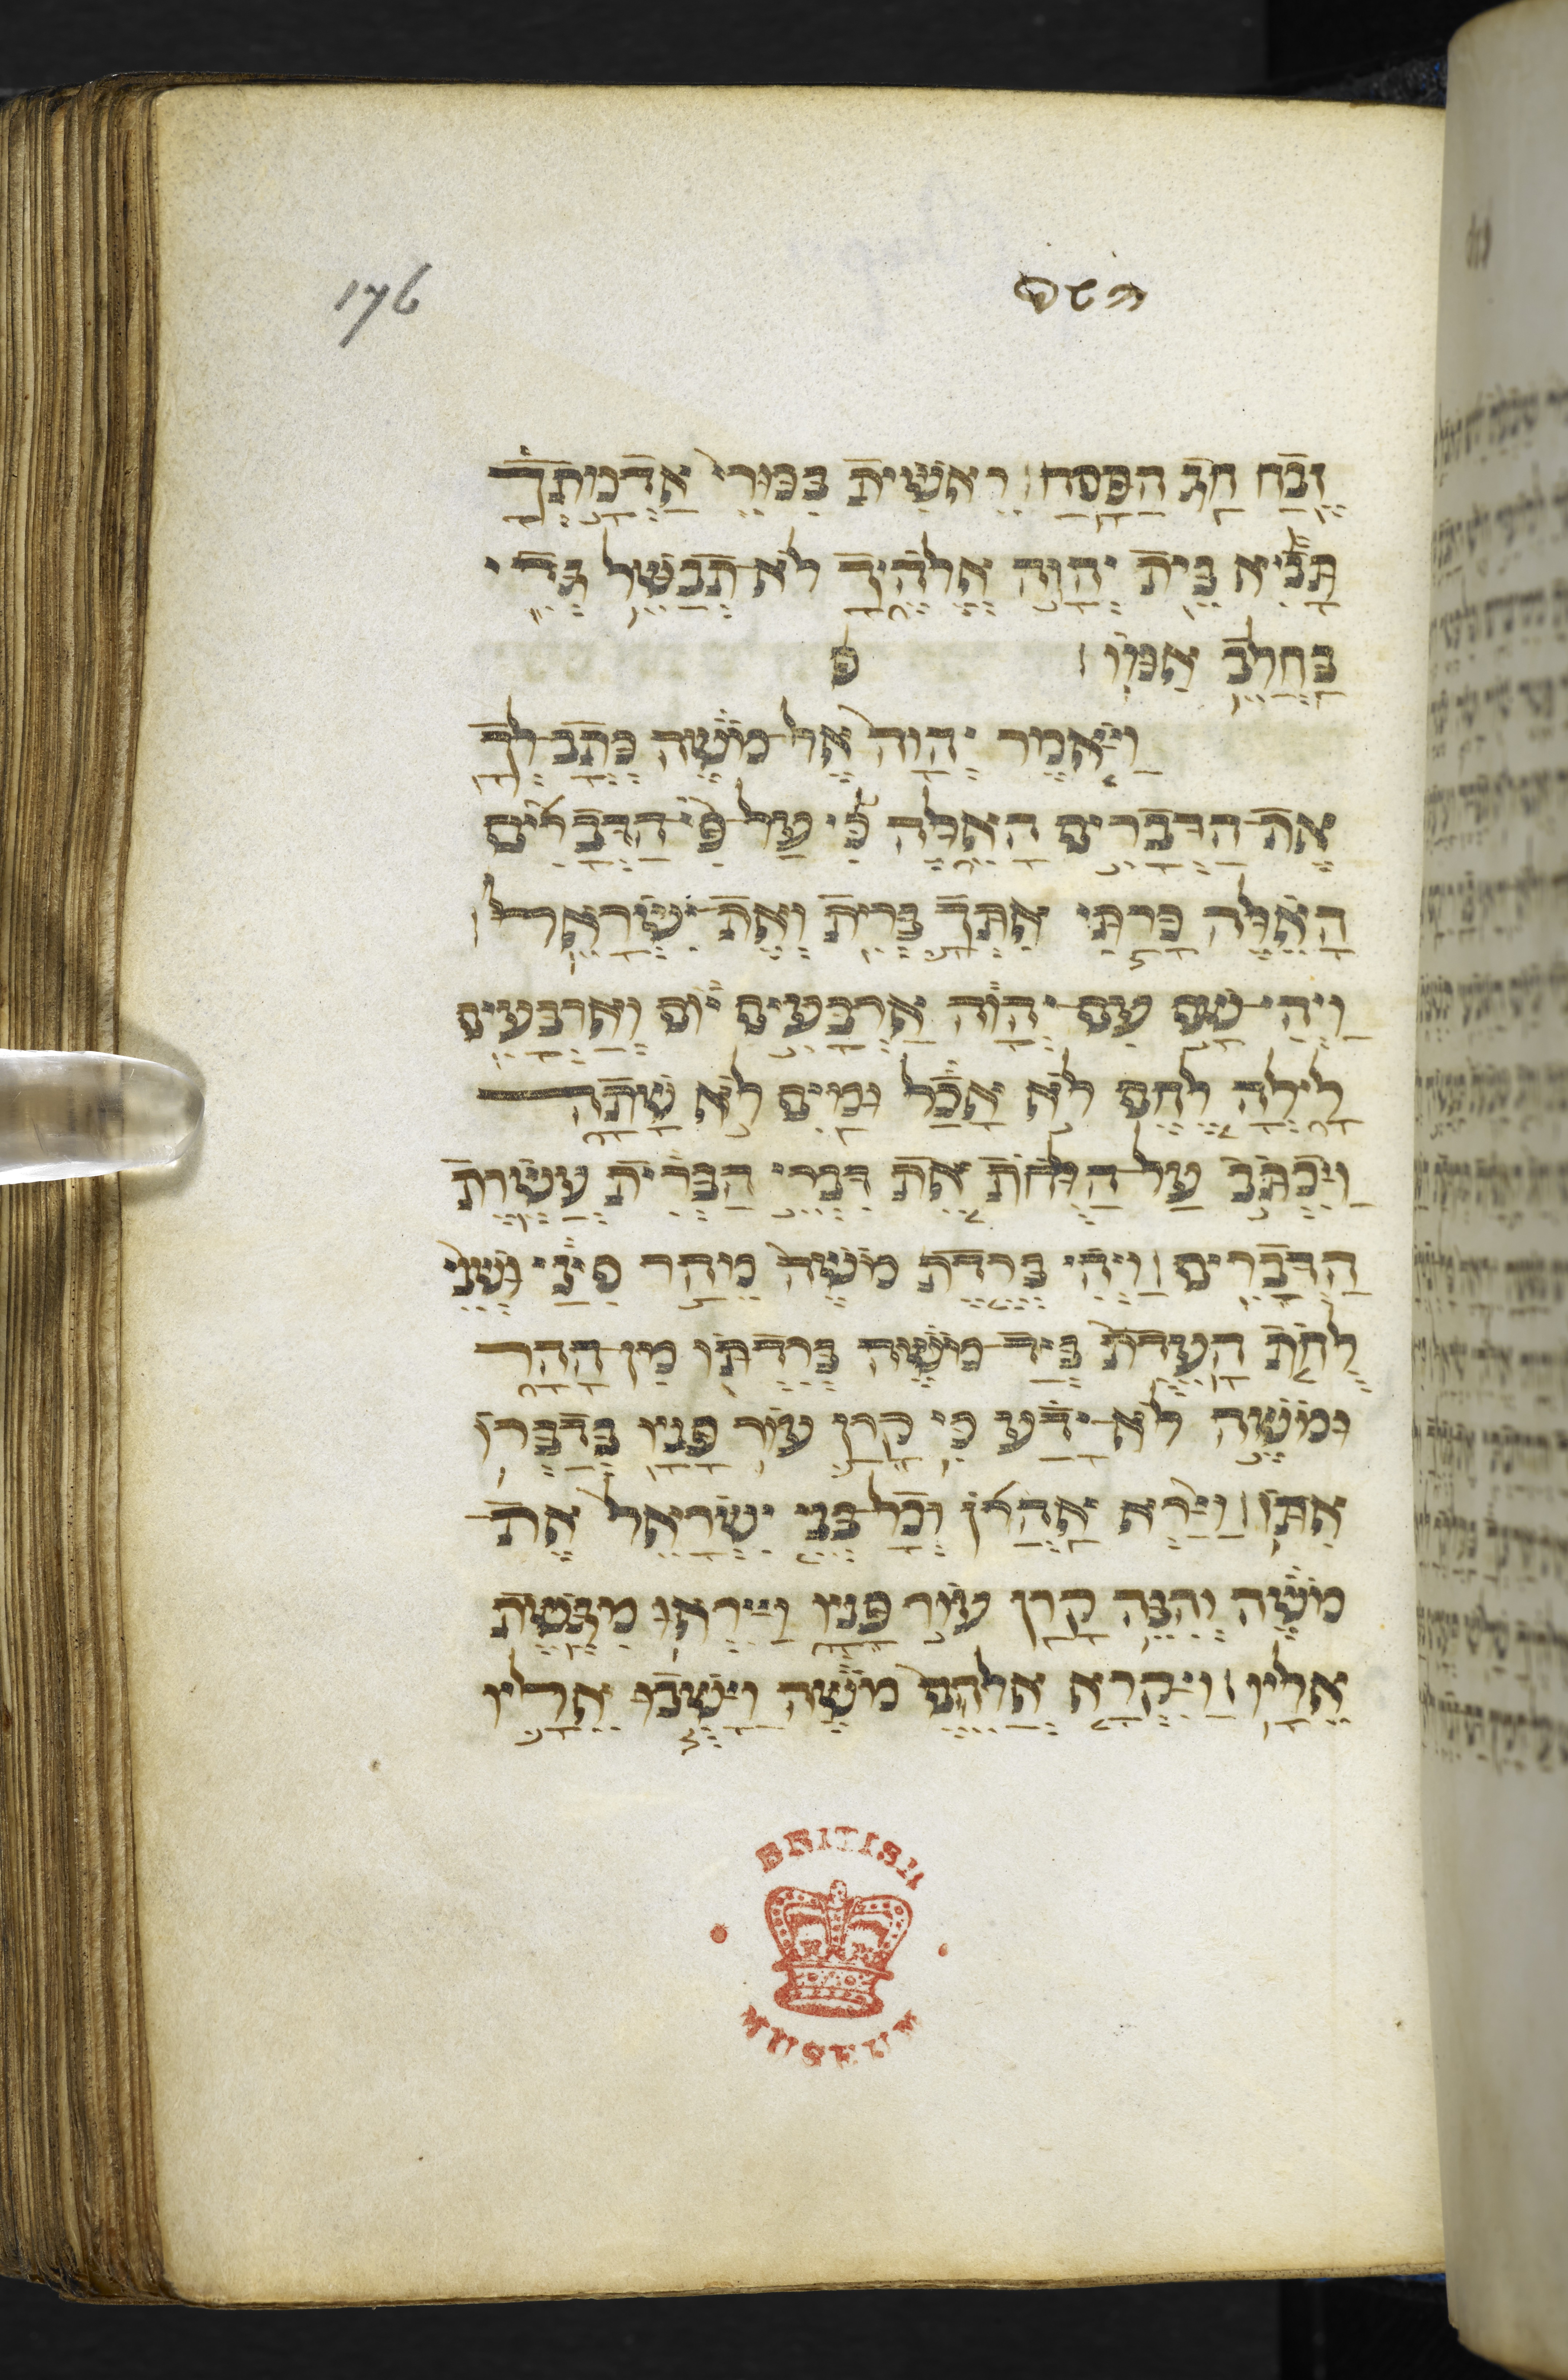 176
זבח חג הפסח׃ ראשית בכורי אדמתך
תביא בית יהוה אלהיך לא־תבשל גדי
בחלב אמו׃ פ
ויאמר יהוה אל־משה כתב־לך
את־הדברים האלה כי על־פי הדברים
האלה כרתי אתך ברית ואת־ישראל׃
ויהי־שם עם־יהוה ארבעים יום וארבעים
לילה לחם לא אכל ומים לא שתה
ויכתב על־הלחת את דברי הברית עשרת
הדברים׃ ויהי ברדת משה מהר סיני ושני
לחת העדת ביד־משה ברדתו מן־ההר
ומשה לא־ידע כי קרן עור פניו בדברו
אתו׃ וירא אהרן וכל־בני ישראל את־
משה והנה קרן עור פניו וייראו מגשת
אליו׃ ויקרא אלהם משה וישבו אליו
BRITISH MUSEUM